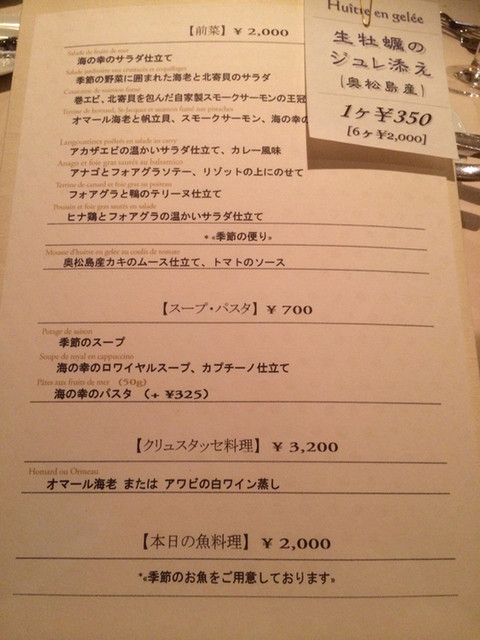 Huître en gelée
生牡蠣の
ジュレ添え
(奥松島産)
1ヶ ¥350
[6ヶ ¥2,000]
【前菜】 ¥ 2,000
Salade de fruits de mer
海の幸のサラダ仕立て
季節の野菜に囲まれた海老と北寄貝のサラダ
巻エビ、北寄貝を包んだ自家製スモークサーモンの王冠
オマール海老と帆立貝、スモークサーモン、海の幸の
Langoustines poêlées en salade au curry
アカザエビの温かいサラダ仕立て、カレー風味
Anago et foie gras sautés au balsamico
アナゴとフォアグラソテー、リゾットの上にのせて
Terrine de canard et foie gras au poireau
フォアグラと鴨のテリーヌ仕立て
Poussin et foie gras sautés en salade
ヒナ鶏とフォアグラの温かいサラダ仕立て
*«季節の便り»
Mousse d'huître en gelée au coulis de tomate
奥松島産カキのムース仕立て、トマトのソース
【スープ・パスタ】 ¥ 700
Potage de saison
季節のスープ
Soupe de royal en cappuccino
海の幸のロワイヤルスープ、カプチーノ仕立て
Pâtes aux fruits de mer (50g)
海の幸のパスタ (+ ¥325)
【クリュスタッセ料理】 ¥ 3,200
Homard ou Ormeau
オマール海老 または アワビの白ワイン蒸し
【本日の魚料理】 ¥ 2,000
*«季節のお魚をご用意しております»